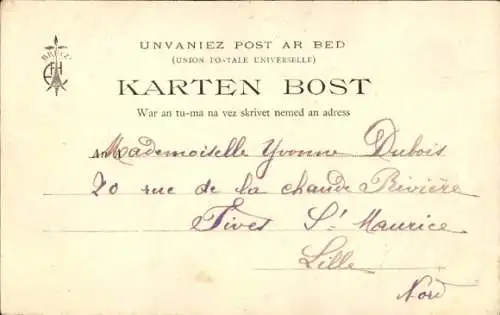 BREIZ
UNVANIEZ POST AR BED
(UNION POSTALE UNIVERSELLE)
KARTEN BOST
War an tu-ma na vez skrivet nemed an adress
Mademoiselle Yvonne Dubois
20 rue de la chaude Rivière
Fives St Maurice
Lille
Nord